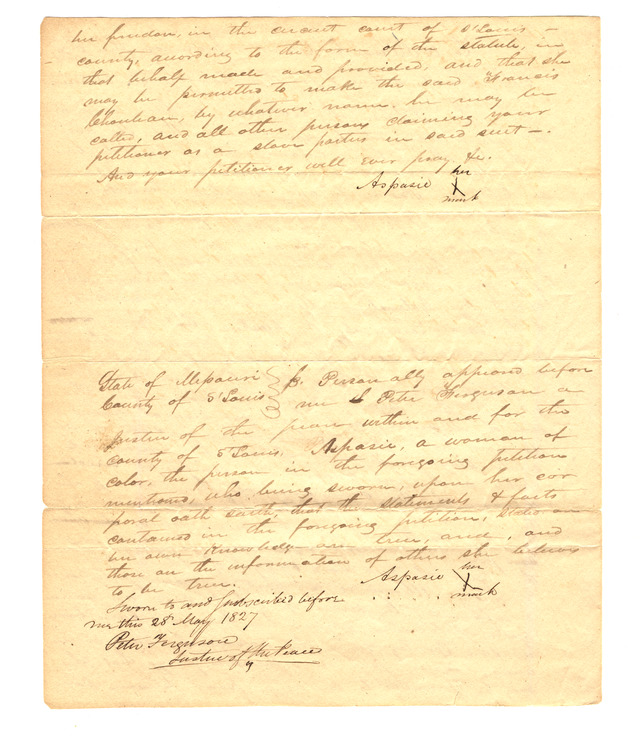 her freedom, in the circuit court of St Louis –
county, acording to the form of the statute, in
that behalf made and provided, and that she
may be permitted to make the said Francis
Chouteau, by whatever name he may be
called, and all other persons claiming your
petitioner as a slave parties in said suit –.
And your petitioner will ever pray &c.
her
Aspasie X
mark
State of Missouri
County of St Louis
ss. Personally appeared before
me Peter Ferguson a
Justice of the peace within and for the
County of St Louis. Aspasie, a woman of
color, the person in the foregoing petition
mentioned, who, being sworn, upon her cor
poral oath saith, that the statements & facts
contained in the foregoing petition, stated on
her own knowledge are true, and, and
those on the information of others she believes
to be true.
her
Aspasie X
mark
Sworn to and Subscribed before
me this 28 May 1827
Peter Ferguson
Justice of the Peace